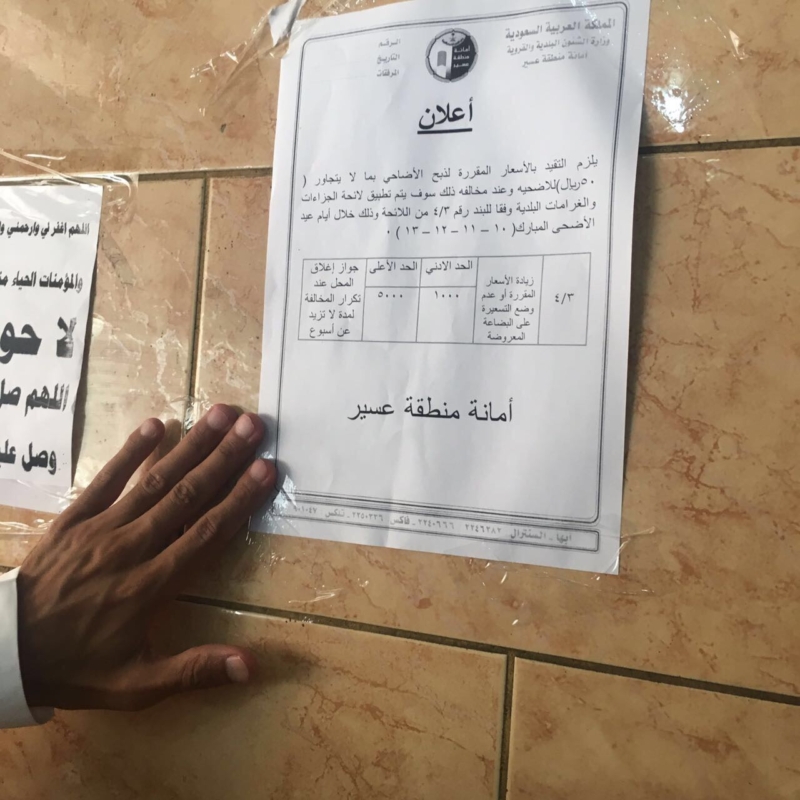 المملكة العربية السعودية
وزارة الشئون البلدية والقروية
أمانة منطقة عسير
الرقم
التاريخ
المرفقات
أمانة
منطقة
عسير
أعلان
يلزم التقيد بالأسعار المقررة لذبح الأضاحي بما لا يتجاور (
٥٠ريال)للاضحيه وعند مخالفه ذلك سوف يتم تطبيق لائحة الجزاءات
والغرامات البلدية وفقا للبند رقم ٤/٣ من اللائحة وذلك خلال أيام عيد
الأضحى المبارك( ١٠ – ١١ – ١٢ – ١٣ ) ٠
٤/٣
زيادة الأسعار
المقررة أو عدم
وضع التسعيرة
على البضاعة
المعروضة
الحد الادني
١٠٠٠
الحد الأعلى
٥٠٠٠
جواز إغلاق
المحل عند
تكرار المخالفة
لمدة لا تزيد
عن أسبوع
أمانة منطقة عسير
ابها - السنترال ٢٢٤٦٣٨٢ ٢٢٤٠٦٦٦ - فاكس ٢٢٥٠٣٢٦ - تلكس
اللهم اغفر لي وارحمني
والمؤمنات الحياء
لا حو
اللهم صل
وصل